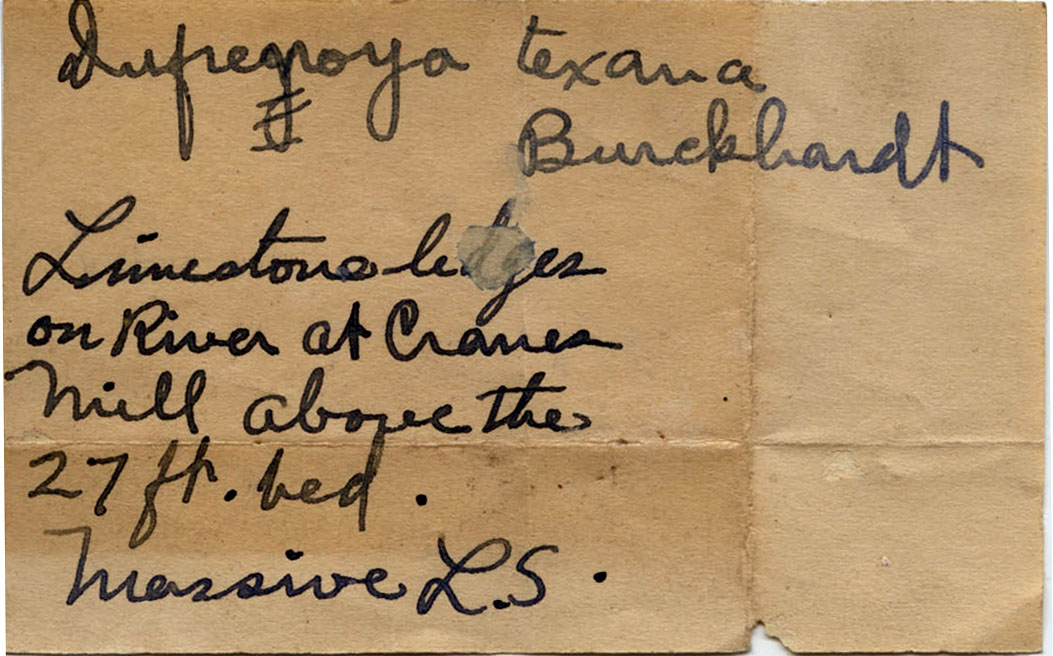 Dufrenoya texana
Burckhardt
Limestone ledges
on River at Cranes
Mill above the
27 ft. bed.
Massive L.S.